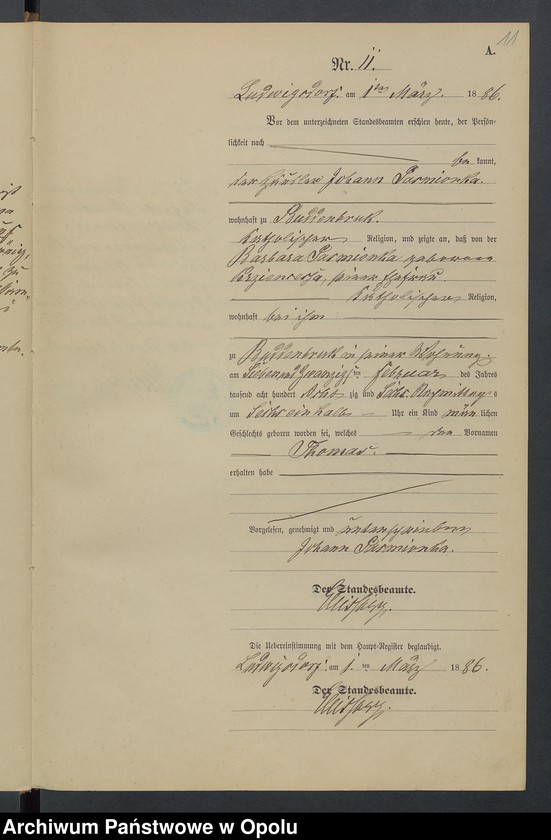 11
A.
Nr. 11.
Ludwigsdorf am 1ten März 1886.
Vor dem unterzeichneten Standesbeamten erschien heute, der Persön-
lichkeit nach
bekannt,
der Häusler Johann Parmionka.
wohnhaft zu Buddenbrock
katholischer Religion, und zeigte an, daß von der
Barbara Parmionka geborene
seiner Ehefrau
katholischer Religion,
wohnhaft bei ihm
zu Buddenbrock in seiner Wohnung
am Sieben und Zwanzigsten Februar des Jahres
tausend acht hundert Achtzig und Sechs Nachmittags
um Sechs einhalb Uhr ein Kind männlichen
Geschlechts geboren worden sei, welches den Vornamen
Thomas.
erhalten habe
Vorgelesen, genehmigt und unterschrieben
Johann Parmionka.
Der Standesbeamte.
Die Uebereinstimmung mit dem Haupt-Register beglaubigt.
Ludwigsdorf am 1.ten März 1886.
Der Standesbeamte.
Archiwum Państwowe w Opolu